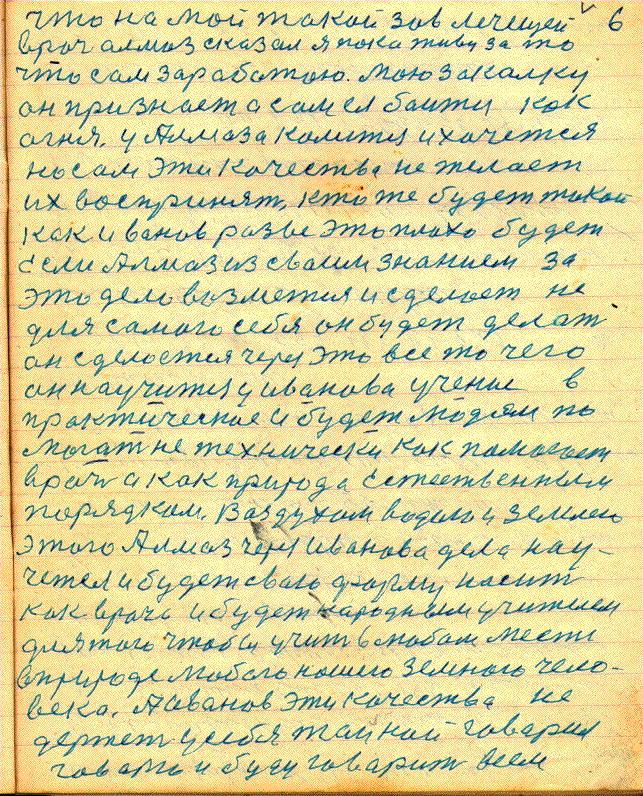 что на мой такой зов лечущей 6
врач алмаз сказал я пока живу за то
что сам зарабатою. мою закалку
он признает а сам ея баити как
огня. у Алмаза комитя и хочется
но сам эти качества не желает
их воспринят, кто же будет такой
как иванов разве это плохо будет
если Алмаз из своим знанием за
это дело возметя и сделает не
для самого себя он будет делат
он сделается через это все то чего
он научитя у иванова учение в
практическое и будет людям по
могат не технически как помогает
врач а как природа естественным
порядком. Воздухом водою и землею
этого Алмаз через иванова дела нау-
четея и будет сваю форму насит
как врача и будет народным учитием
для того чтобы учит в любом мести
в природе любого нашего земного чело-
века. А иванов эти качества не
держет у себя тайной говарил
говарю и буду говарит всем